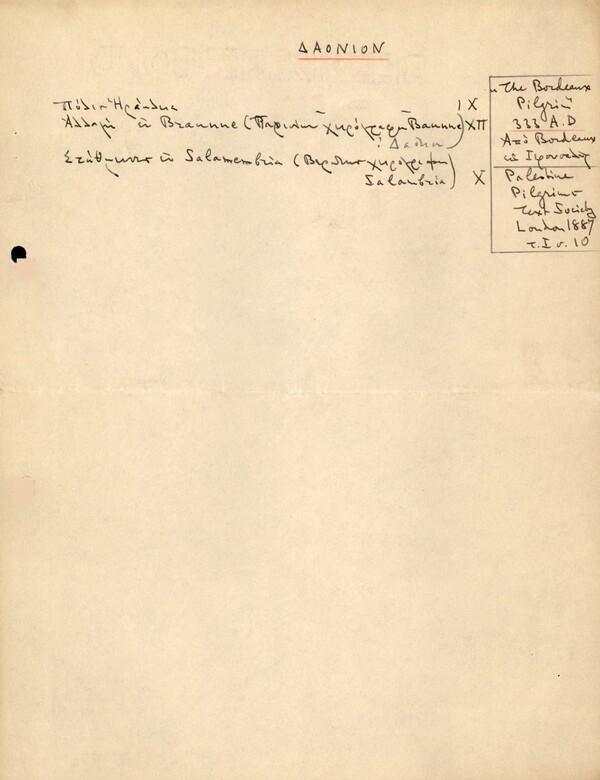 ΔΑΟΝΙΟΝ
Πόλις Ηράκλεια ΙΧ
Αλλαγή εις Braunne (Παρισίων χειρόγραφον Baunne) ΧΙΙ
; Δαόνιον
Στάθμευσις εις Salamembria (Βερόνης χειρόγραφον
Salambria) Χ
"The Bordeaux
Pilgrim"
333 A.D
Από Bordeaux
εις Ιερουσαλήμ
Palestine
Pilgrims
Text Society
London 1887
τ. Ι σ. 10